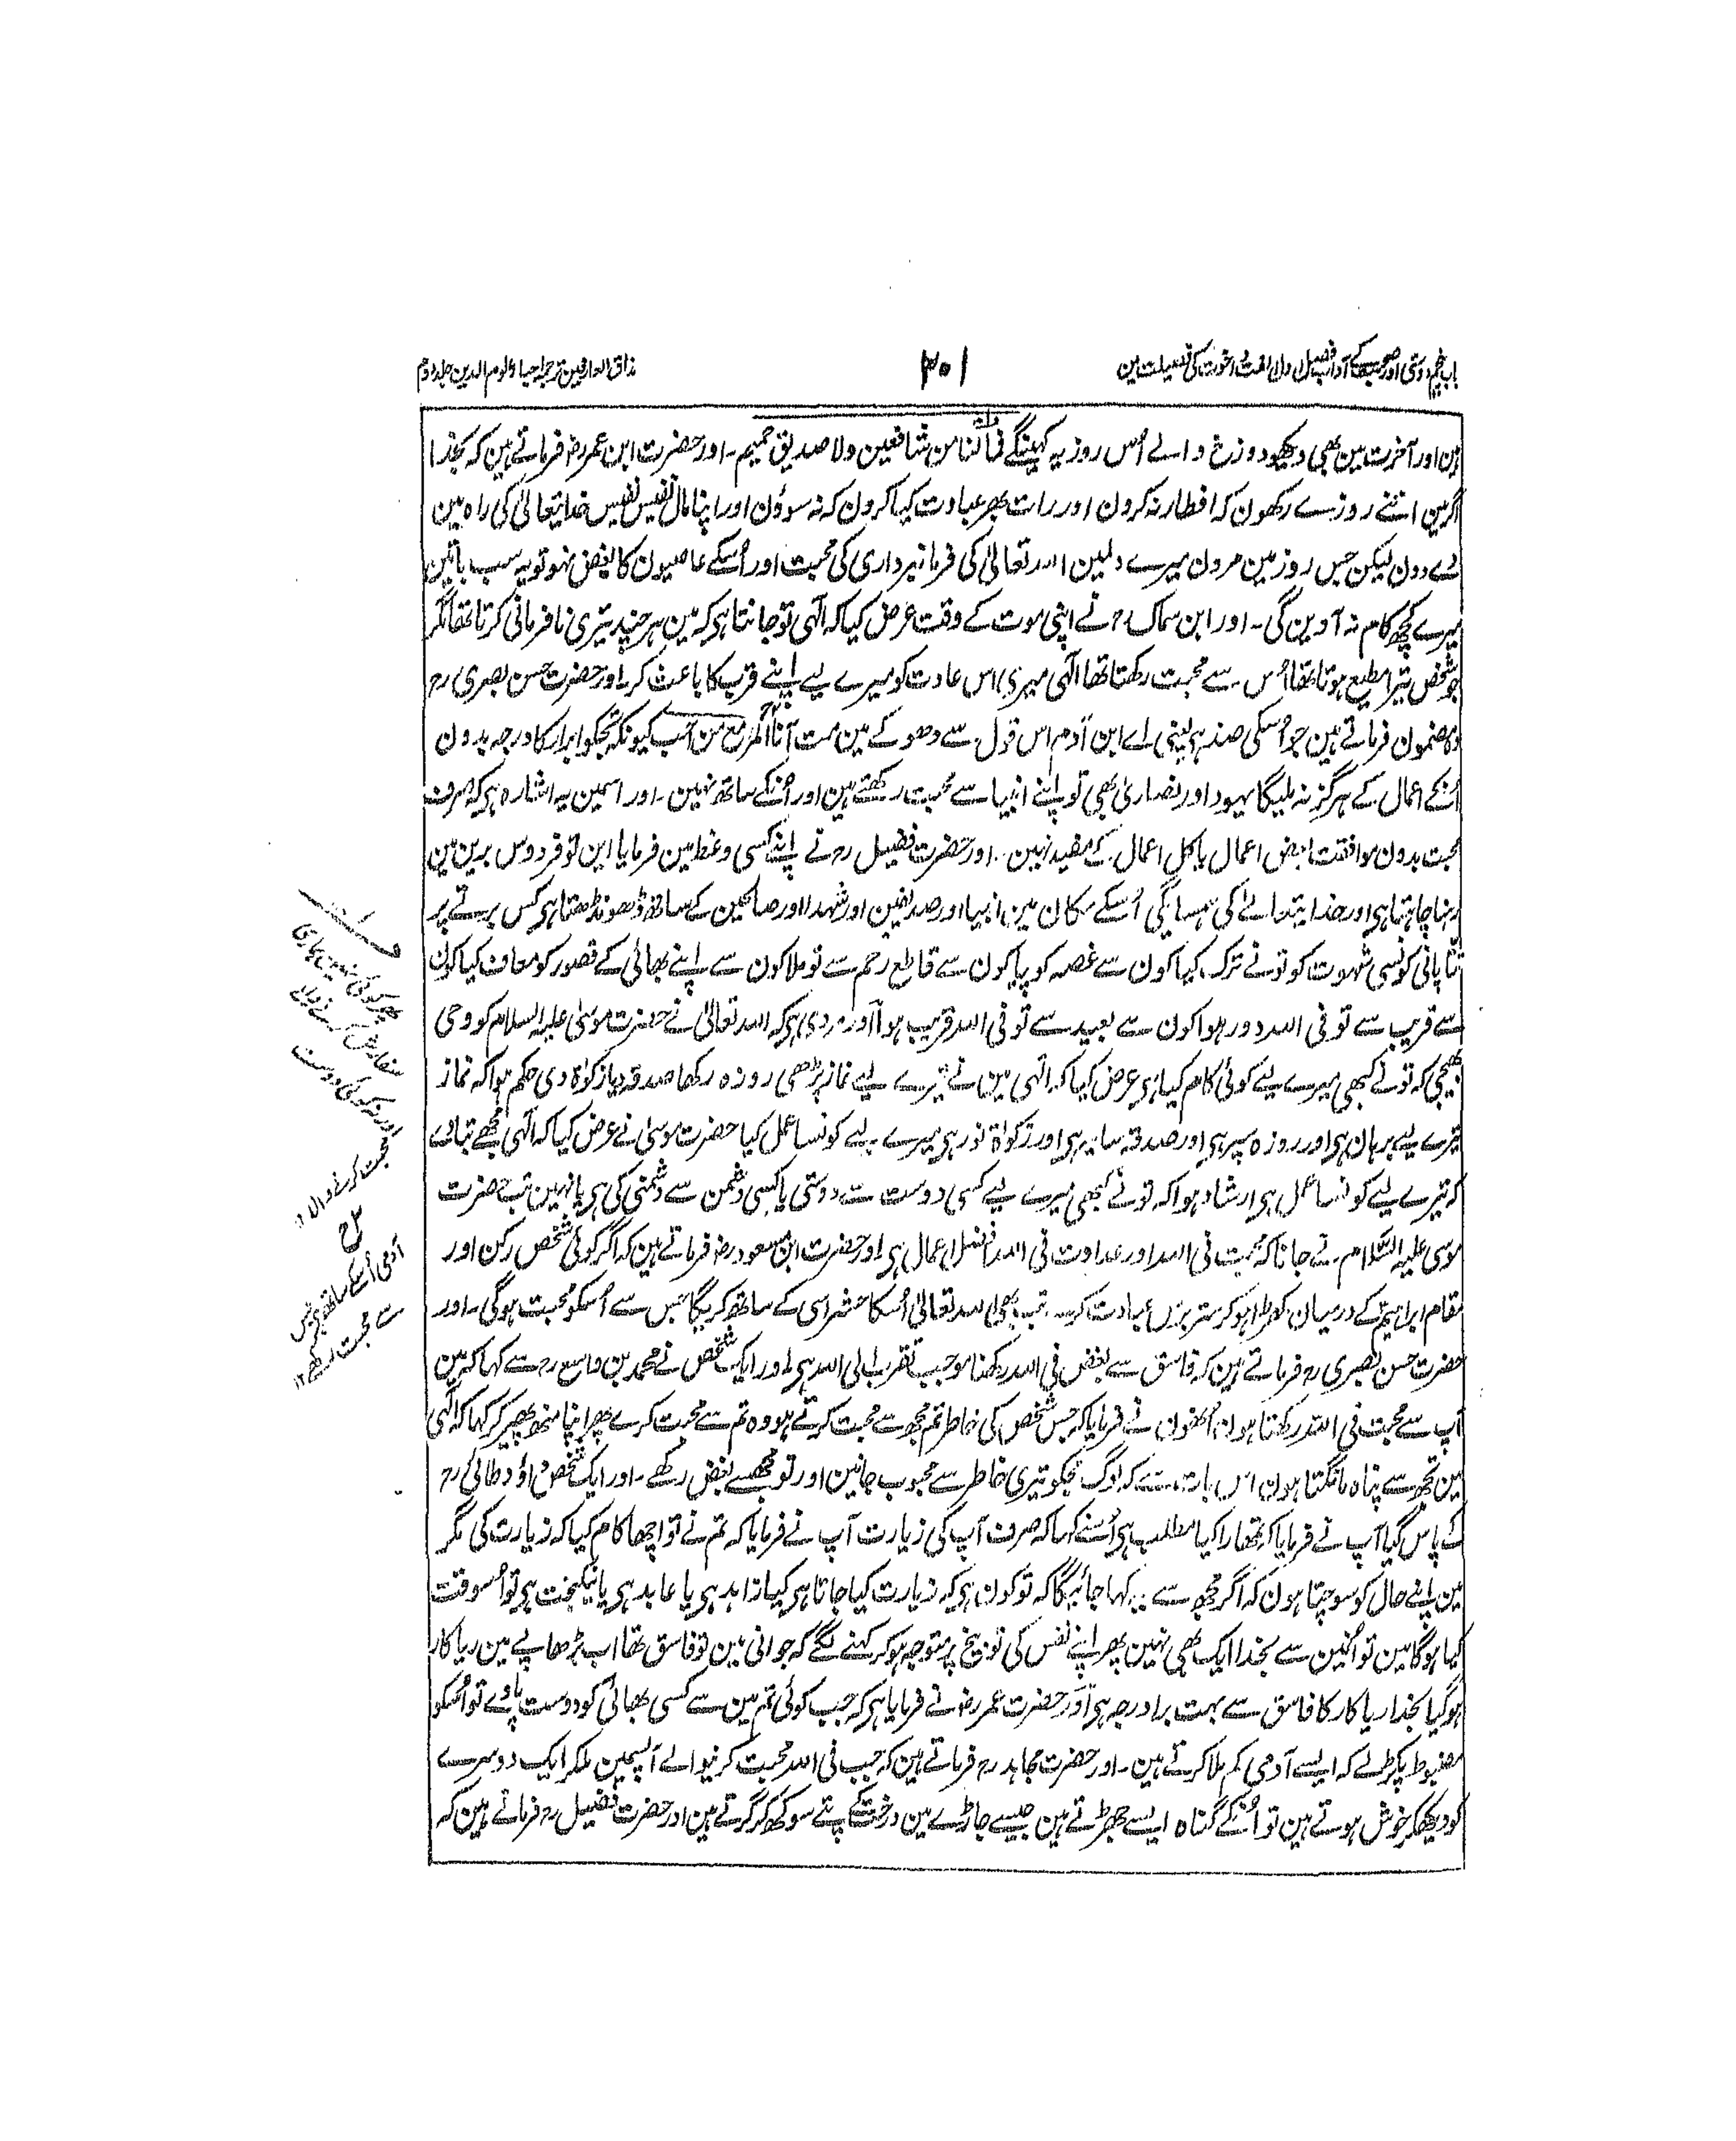 باب پنجم دوستی اور صحبت کے آداب فصل اول الفت و اخوت کی فضیلت مین
۳۰۱
مذاق العارفین ترجمہ احیاء علوم الدین جلد دوم
ہین اور آخرت مین بھی دیکھو دوزخ والے اُس روز یہ کہینگے فمالنا من شافعین ولا صدیق حمیم ۔ اور حضرت ابن عمر رضہ فرماتے ہین کہ بخدا
اگر مین اتنے روزے رکھون کہ افطار نہ کرون اور رات بھر عبادت کیا کرون کہ نہ سوؤن اور اپنا مال نفیس نفیس خدا یتعالیٰ کی راہ مین
دے دون لیکن جس روز مین مرون میرے دلمین اللہ تعالیٰ کی فرمانبرداری کی محبت اور اُسکے عاصیون کا بغض نہو تو یہ سب باتین
میرے کچھ کام نہ آوین گی ۔ اور ابن سماک رح نے اپنی موت کے وقت عرض کیا کہ الٰہی تو جانتا ہی کہ مین ہر چند تیری نافرمانی کرتا تھا مگر
جو شخص تیرا مطیع ہوتا تھا اُس سے محبت رکھتا تھا الٰہی میری اس عادت کو میرے لیے اپنے قرب کا باعث کر اور حضرت حسن بصری رح
وہ مضمون فرماتے ہین جو اُسکی ضد ہی یعنی اے ابن آدم اس قول سے دھوکے مین مت آنا المرء مع من احب کیونکہ تجکو ابرار کا درجہ بدون
اُنکے اعمال کے ہرگز نہ ملیگا یہود اور نصاریٰ بھی تو اپنے انبیا سے محبت رکھتے ہین اور اُنکے ساتھ نہین ۔ اور اسمین یہ اشارہ ہی کہ صرف
محبت بدون موافقت بعض اعمال یا کل اعمال کے مفید نہین ۔ اور حضرت فضیل رح نے اپنے کسی وعظ مین فرمایا این تو فردوس برین مین
رہنا چاہتا ہی اور خدا یتعالیٰ کی ہمسایگی اُسکے مکان مین انبیا اور صدیقین اور شہدا اور صالحین کے ساتھ ڈھونڈھتا ہی کس برتے پر
تتا پانی کونسی شہوت کو تونے ترک کیا کون سے غصہ کو پیا کون سے قاطع رحم سے تو ملا کون سے اپنے بھائی کے قصور کو معاف کیا کون
سے قریب سے تو فی اللہ دور ہوا کون سے بعید سے تو فی اللہ قریب ہوا اور مروی ہی کہ اللہ تعالیٰ نے حضرت موسیٰ علیہ السلام کو وحی
بھیجی کہ تونے کبھی میرے لیے کوئی کام کیا ہی عرض کیا کہ الٰہی مین نے تیرے لیے نماز پڑھی روزہ رکھا صدقہ دیا زکوٰۃ دی حکم ہوا کہ نماز
تیرے لیے برہان ہی اور روزہ سپر ہی اور صدقہ سایہ ہی اور زکواۃ نور ہی میرے لیے کونسا عمل کیا حضرت موسیٰ نے عرض کیا کہ الٰہی مجھے بتا دے
کہ تیرے لیے کونسا عمل ہی ارشاد ہوا کہ تونے کبھی میرے لیے کسی دوست سے دوستی یا کسی دشمن سے دشمنی کی ہی یا نہین تب حضرت
موسی علیہ السّلام نے جانا کہ محبت فی اللہ اور عداوت فی اللہ افضل اعمال ہی اور حضرت ابن مسعود رضہ فرماتے ہین کہ اگر کوئی شخص رکن اور
مقام ابراہیم کے درمیان کھڑا ہو کر ستر برس عبادت کرے تب بھی اللہ تعالیٰ اُسکا حشر اسی کے ساتھ کریگا جس سے اُسکو محبت ہوگی ۔ اور
حضرت حسن بصیری رح فرماتے ہین کہ فاسق سے بغض فی اللہ رکھنا موجب تقرب الی اللہ ہی اور ایک شخص نے محمد بن واسع رح سے کہا کہ مین
آپ سے محبت فی اللہ رکھتا ہون اُنھون نے فرمایا کہ جس شخص کی خاطر تم مجھ سے محبت کرتے ہو وہ تم سے محبت کرے پھر اپنا منھ پھیر کر کہا کہ الٰہی
مین تجھ سے پناہ مانگتا ہون اس بات سے کہ لوگ مجکو تیری خاطر سے محبوب جانین اور تو مجھسے بغض رکھے ۔ اور ایک شخص داؤد طائی رح
کے پاس گیا آپ نے فرمایا کہ تمھارا کیا مطلب ہی اُسنے کہا کہ صرف آپ کی زیارت آپ نے فرمایا کہ تم نے تو اچھا کام کیا کہ زیارت کی مگر
مین اپنے حال کو سوچتا ہون کہ اگر مجھ سے کہا جائیگا کہ تو کون ہی کہ زیارت کیا جاتا ہی کیا زاہد ہی یا عابد ہی یا نیکبخت ہی تو اُسوقت
کیا ہوگا مین تو اُنمین سے بخدا ایک بھی نہین پھر اپنے نفس کی توبیخ پر متوجہ ہو کر کہنے لگے کہ جوانی مین تو فاسق تھا اب بڑھاپے مین ریاکار
ہوگیا بخدا ریاکار کا فاسق سے بہت برا درجہ ہی اور حضرت عمر رضہ نے فرمایا ہی کہ جب کوئی تم مین سے کسی بھائی کو دوست پاوے تو اُسکو
مضبوط پکڑلے کہ ایسے آدمی کم ملا کرتے ہین ۔ اور حضرت مجاہد رح فرماتے ہین کہ جب فی اللہ محبت کرنیوالے آپسمین ملکر ایک دوسرے
کو دیکھکر خوش ہوتے ہین تو اُنکے گناہ ایسے جھڑتے ہین جیسے جاڑے مین درخت کے پتے سوکھ کر گرتے ہین اور حضرت فضیل رح فرماتے ہین کہ
پھر کوئی نہین ہماری
سفارش کرنے والا
اور نہ کوئی دوست
محبت کرنے والا ۱۲
آدمی اُسکے ساتھ ہی جس
سے محبت رکھے ۱۲